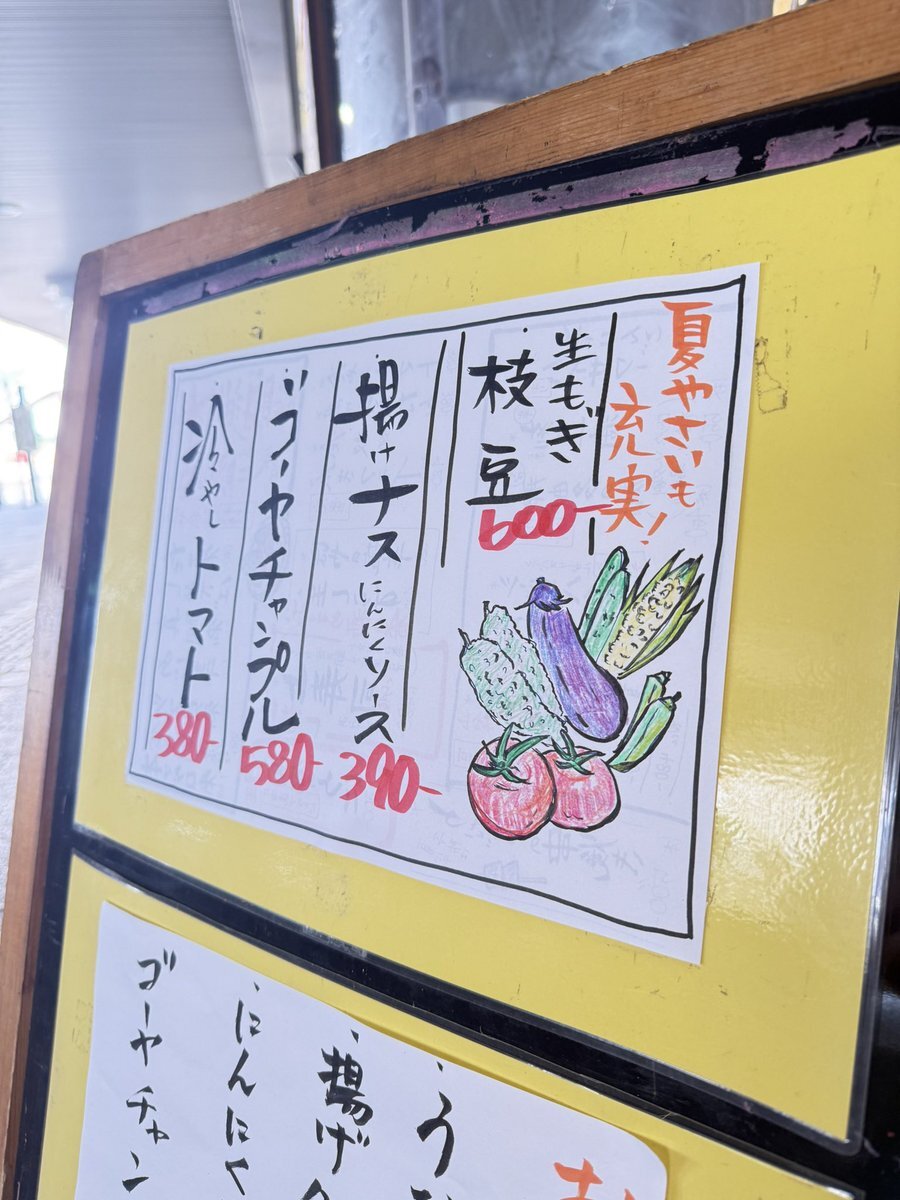 夏やさいも
充実!
生もぎ
枝豆
600-
揚げナスにんにくソース
390-
ゴーヤチャンプル
580-
冷やしトマト
380-
う
揚げ
にんにく
ゴーヤチャン